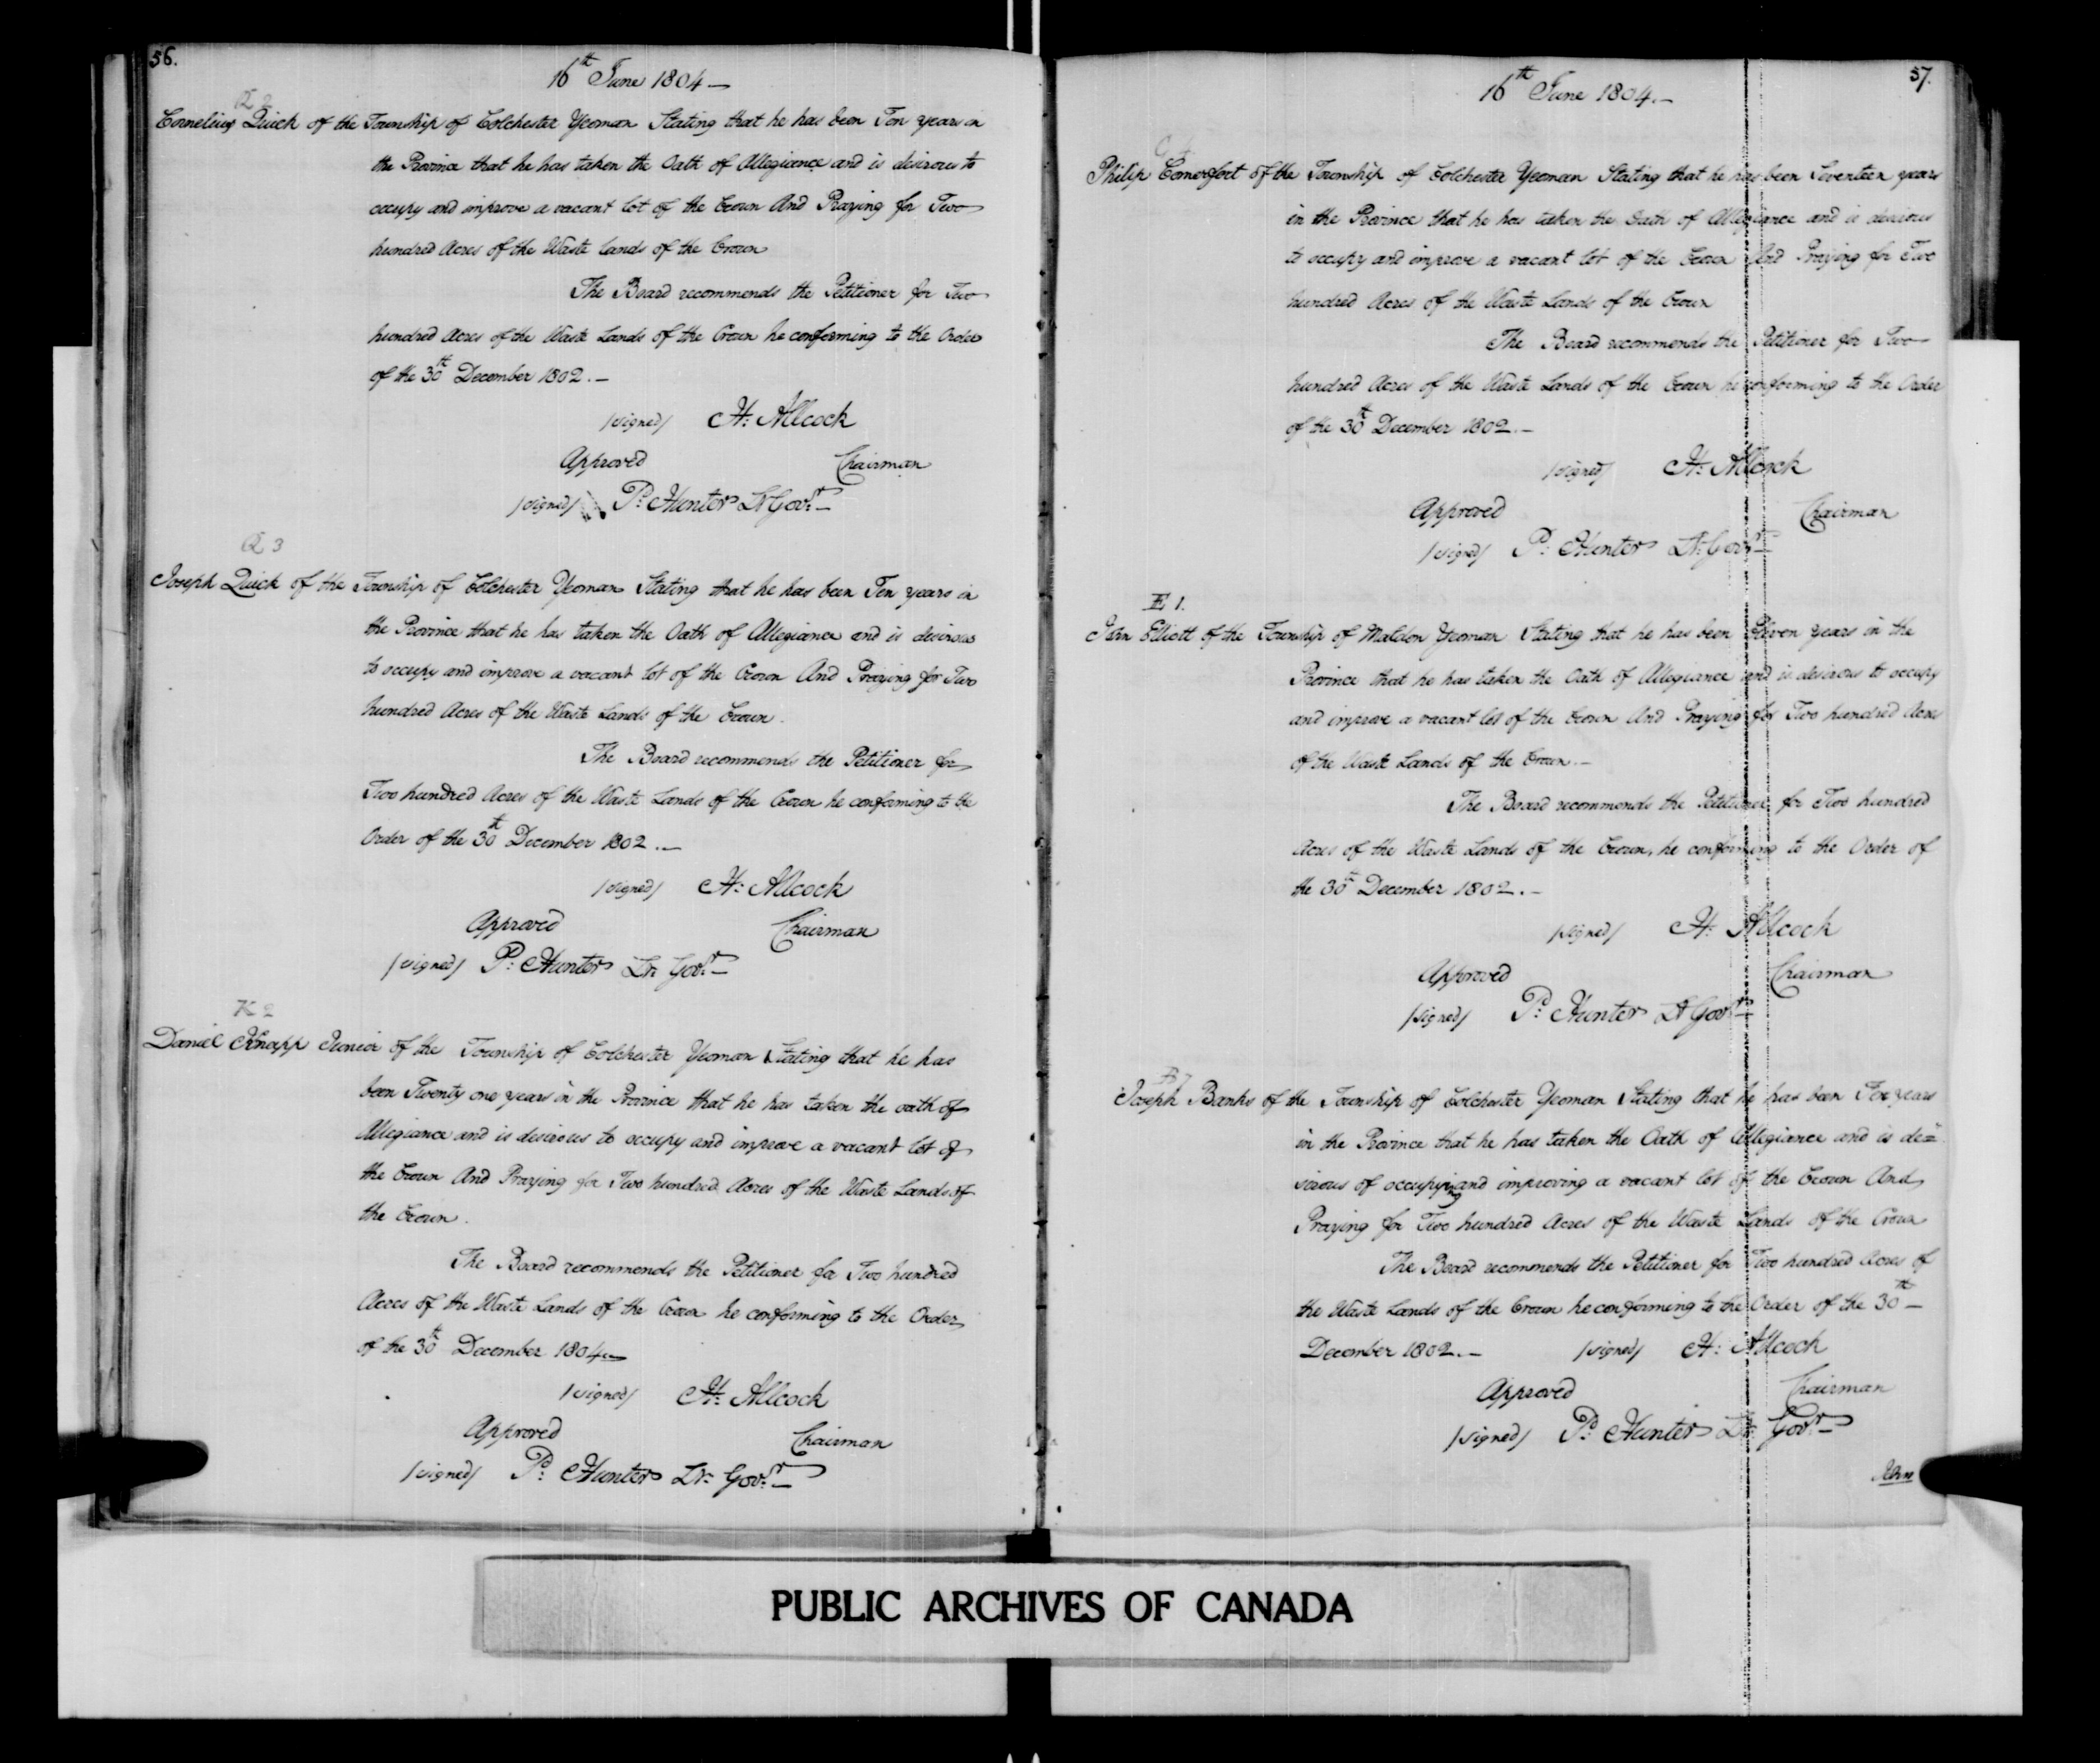 56.
16th June 1804 —
Q 2
Cornelius Quick of the Township of Colchester Yeoman Stating that he has been Ten years in
the Province that he has taken the Oath of Allegiance and is desirous to
occupy and improve a vacant lot of the Crown And Praying for Two
hundred Acres of the Waste lands of the Crown
The Board recommends the Petitioner for Two
hundred Acres of the Waste Lands of the Crown he conforming to the Order
of the 30th December 1802. —
/signed/ H: Allcock
Approved Chairman
/signed/ P: Hunter Lt Govr. —
Q 3
Joseph Quick of the Township of Colchester Yeoman Stating that he has been Ten years in
the Province that he has taken the Oath of Allegiance and is desirous
to occupy and improve a vacant lot of the Crown And Praying for Two
hundred Acres of the Waste Lands of the Crown.
The Board recommends the Petitioner for
Two hundred Acres of the Waste Lands of the Crown he conforming to the
Order of the 30th December 1802. —
/signed/ H: Allcock
Approved Chairman
/signed/ P: Hunter Lt. Govr. —
K 2
Daniel Knapp Junior of the Township of Colchester Yeoman Stating that he has
been Twenty one years in the Province that he has taken the oath of
Allegiance and is desirous to occupy and improve a vacant lot of
the Crown And Praying for Two hundred Acres of the Waste Lands of
the Crown.
The Board recommends the Petitioner for Two hundred
Acres of the Waste Lands of the Crown he conforming to the Order
of the 30th December 1804. —
/signed/ H: Allcock
Approved Chairman
/signed/ P: Hunter Lt. Govr. —
57.
16th June 1804. —
Philip Comerfort of the Township of Colchester Yeoman Stating that he has been Seventeen years
in the Province that he has taken the Oath of Allegiance and is desirous
to occupy and improve a vacant lot of the Crown And Praying for Two
hundred Acres of the Waste Lands of the Crown
The Board recommends the Petitioner for Two
hundred Acres of the Waste Lands of the Crown he conforming to the Order
of the 30th December 1802. —
/signed/ H: Allcock
Approved Chairman
/signed/ P: Hunter Lt. Govr. —
E 1.
John Elliott of the Township of Malden Yeoman Stating that he has been Eleven years in the
Province that he has taken the Oath of Allegiance and is desirous to occupy
and improve a vacant lot of the Crown And Praying for Two hundred Acres
of the Waste Lands of the Crown. —
The Board recommends the Petitioner for Two hundred
Acres of the Waste Lands of the Crown, he conforming to the Order of
the 30th December 1802. —
/signed/ H: Allcock
Approved Chairman
/signed/ P: Hunter Lt Govr. —
B 7
Joseph Banks of the Township of Colchester Yeoman Stating that he has been Ten years
in the Province that he has taken the Oath of Allegiance and is de=
sirous of occupying and improving a vacant lot of the Crown And
Praying for Two hundred Acres of the Waste Lands of the Crown
The Board recommends the Petitioner for Two hundred Acres of
the Waste Lands of the Crown he conforming to the Order of the 30th —
December 1802. — /signed/ H: Allcock
Approved Chairman
/signed/ P: Hunter Lt. Govr. —
John
PUBLIC ARCHIVES OF CANADA